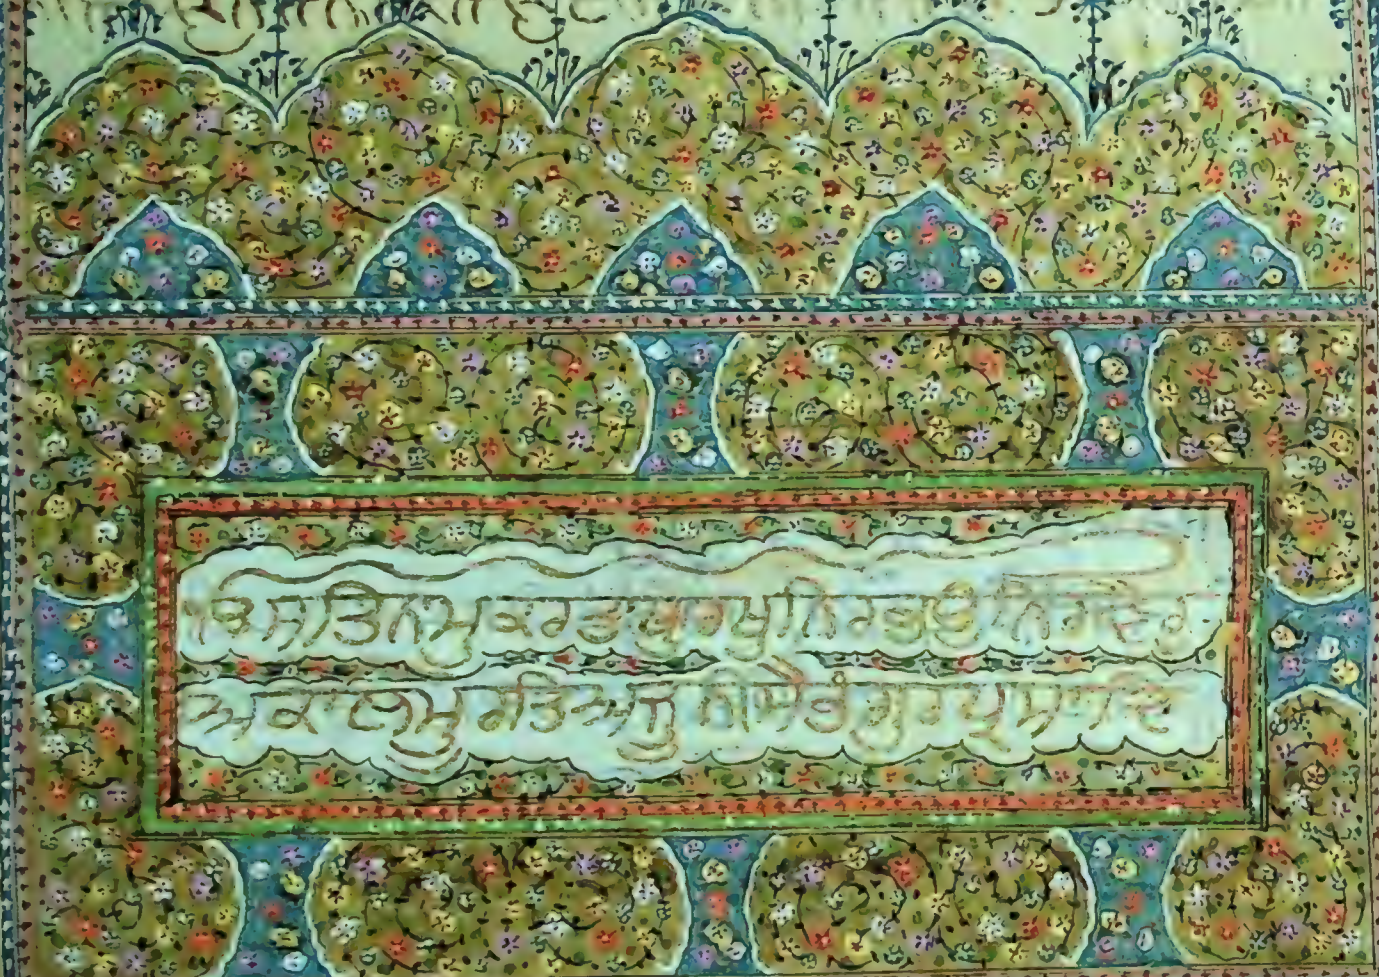 ੴ ਸਤਿਨਾਮੁ ਕਰਤਾ ਪੁਰਖੁ ਨਿਰਭਉ ਨਿਰਵੈਰੁ
ਅਕਾਲ ਮੂਰਤਿ ਅਜੂਨੀ ਸੈਭੰ ਗੁਰ ਪ੍ਰਸਾਦਿ